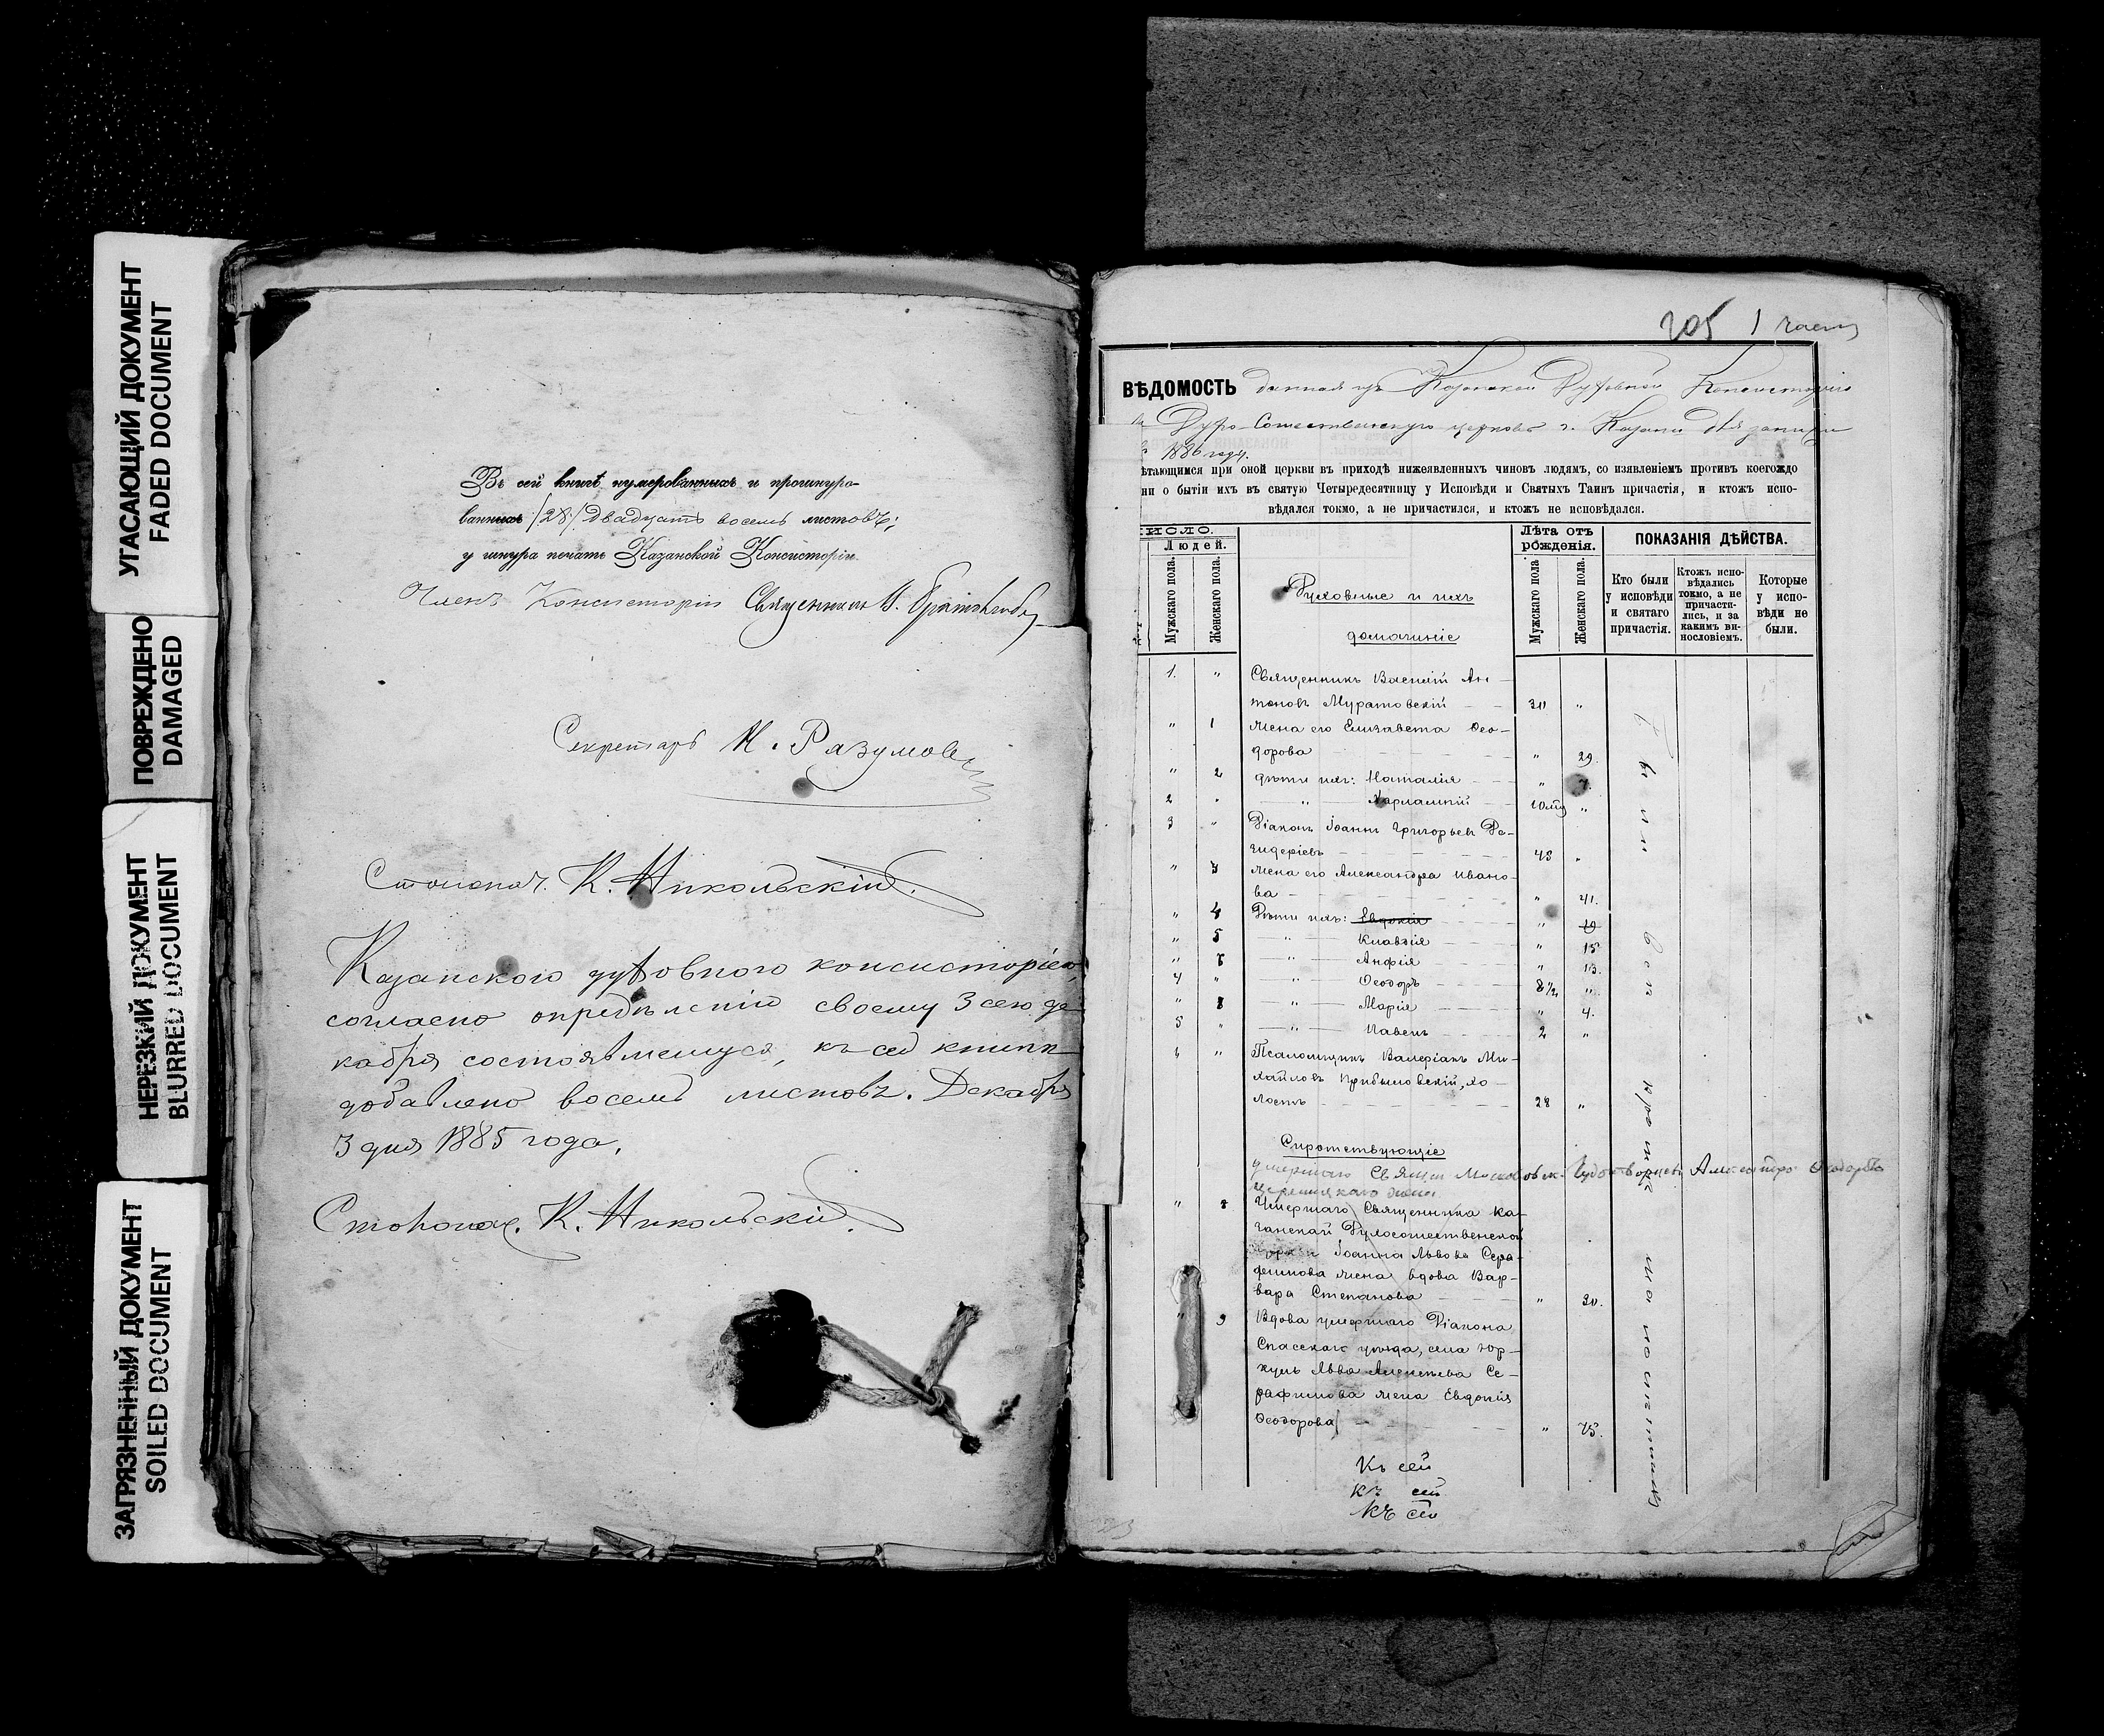 УГАСАЮЩИЙ ДОКУМЕНТ
FADED DOCUMENT
ПОВРЕЖДЕНО
DAMAGED
НЕРЕЗКИЙ ДОКУМЕНТ
BLURRED DOCUMENT
ЗАГРЯЗНЕННЫЙ ДОКУМЕНТ
SOILED DOCUMENT
Въ сей книгѣ нумерованныхъ и прошнуро-
ванныхъ /28/ двадцать восемь листовъ;
у шнура печать Казанской Консисторіи
Членъ Консисторіи Священникъ
Секретарь Н. Разумов
Столонач. К. Никольскій.
Казанскою духовною консисторіею,
согласно опредѣленію своему 3 сего де
кабря состоявшемуся, къ сей книгѣ
добавлено восемь листовъ. Декабря
3 дня 1885 года.
Столонач. К. Никольскій.
205 1 часть
ВѢДОМОСТЬ данная изъ Казанской Духовной Консисторіи
Духо-Сошественскую церковь г. Казани для записи
1886 году.
ѣтающимся при оной церкви въ приходѣ нижеявленныхъ чиновъ людямъ, со изявленіемъ противъ коегождо
ни о бытіи ихъ въ святую Четыредесятницу у Исповѣди и Святыхъ Таинъ причастія, и ктожъ испо-
вѣдался токмо, а не причастился, и ктожъ не исповѣдался.
ЧИСЛО.
Людей.
Мужскаго пола.
Женскаго пола.
Духовные и ихъ
домашніе
Лѣта отъ рожденія.
Мужскаго пола
Женскаго пола.
ПОКАЗАНІЯ ДѢЙСТВА.
Кто были у исповѣди и святаго причастія.
Ктожъ испо-вѣдались токмо, а не причасти-лись, и за какимъ ви-нословіемъ.
Которые у испо-вѣди не были.
1. " Священникъ Василій Ан-
тоновъ Муратовскій 30 "
" 1 Жена его Елизавета Ѳео-
дорова " 29.
" 2 Дѣти ихъ: Наталія " 7.
2 " " Харлампій 10 "
3 " Діаконъ Іоаннъ Григорьевъ
48 "
" 3 Жена его Александра Ивано-
ва " 41.
" 4 Дѣти ихъ: Евдокія " 19
" 5 " Клавдія " 15
" " Анфія " 13.
4 " " Ѳеодоръ 8½ "
" 8 " Марія " 4.
5 " " Павелъ 2 "
" Псаломщикъ Валеріанъ Ми-
хайловъ Прибыловскій, хо-
лостъ 28 "
Сиротствующіе
Умершаго Священ. Александра Ѳеодор
жена
" Умершаго Священника Ка-
занской Духосошественской
Іоанна Львова Сера-
фимова жена вдова Вар-
вара Степанова " 30.
" 9 Вдова умершаго Діакона
Спасскаго уѣзда, села Юр-
куль Льва Алексѣева Се-
рафимова жена Евдокія
Ѳеодорова " 75.
Были
все
Къ сей
Къ сей
Къ сей